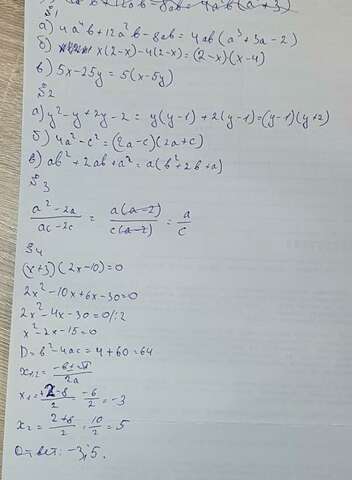 №1
а) 4a⁴b + 12a²b - 8ab = 4ab(a³ + 3a - 2)
б) x(2-x) - 4(2-x) = (2-x)(x-4)
в) 5x - 25y = 5(x - 5y)
№2
а) y² - y + 2y - 2 = y(y-1) + 2(y-1) = (y-1)(y+2)
б) 4a² - c² = (2a-c)(2a+c)
в) ab² + 2ab + a² = a(b² + 2b + a)
№3
(a² - 2a)/(ac - 2c) = a(a-2)/c(a-2) = a/c
№4
(x+3)(2x-10) = 0
2x² - 10x + 6x - 30 = 0
2x² - 4x - 30 = 0 /:2
x² - 2x - 15 = 0
D = b² - 4ac = 4 + 60 = 64
x₁,₂ = (-b ± √D)/2a
x₁ = (2-8)/2 = -6/2 = -3
x₂ = (2+8)/2 = 10/2 = 5
Ответ: -3; 5.